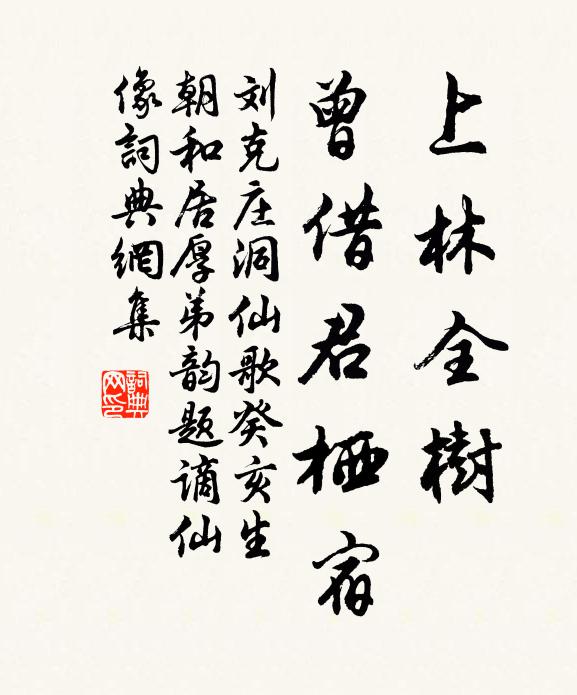 上林全樹
曾借君栖宿
刘克庄洞仙歌癸亥生
朝和居厚弟韵题谪仙
像詞典網集
詞典
网印